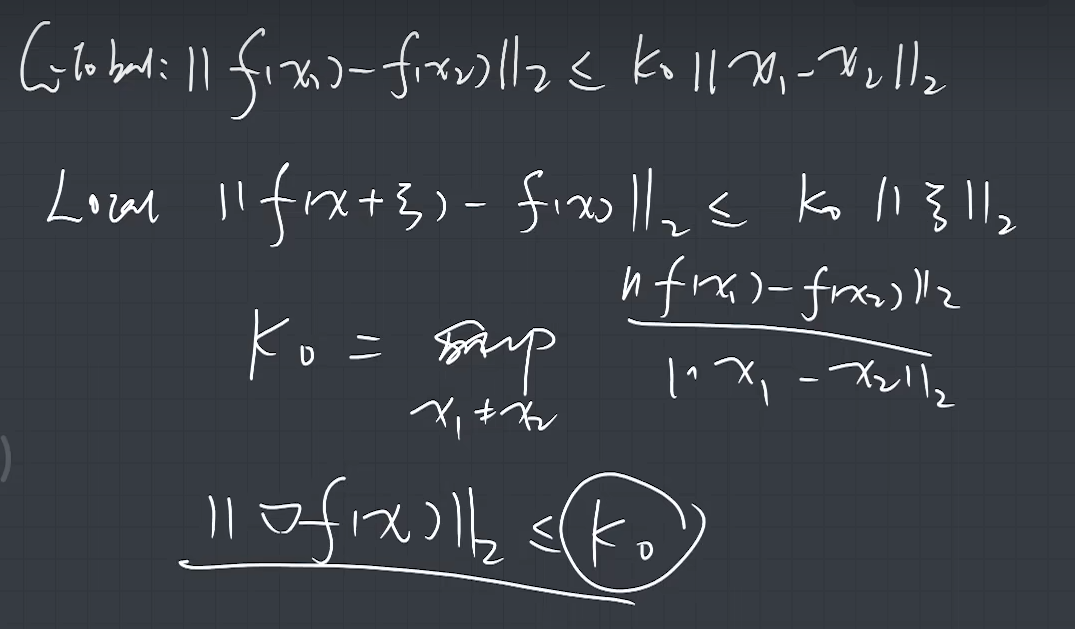 Global: || f(x₁) - f(x₂) ||₂ ≤ K₀ || x₁ - x₂ ||₂
Local || f(x + ξ) - f(x) ||₂ ≤ K₀ || ξ ||₂
K₀ = sup_{x₁ ≠ x₂} || f(x₁) - f(x₂) ||₂ / || x₁ - x₂ ||₂
|| ∇f(x) ||₂ ≤ K₀